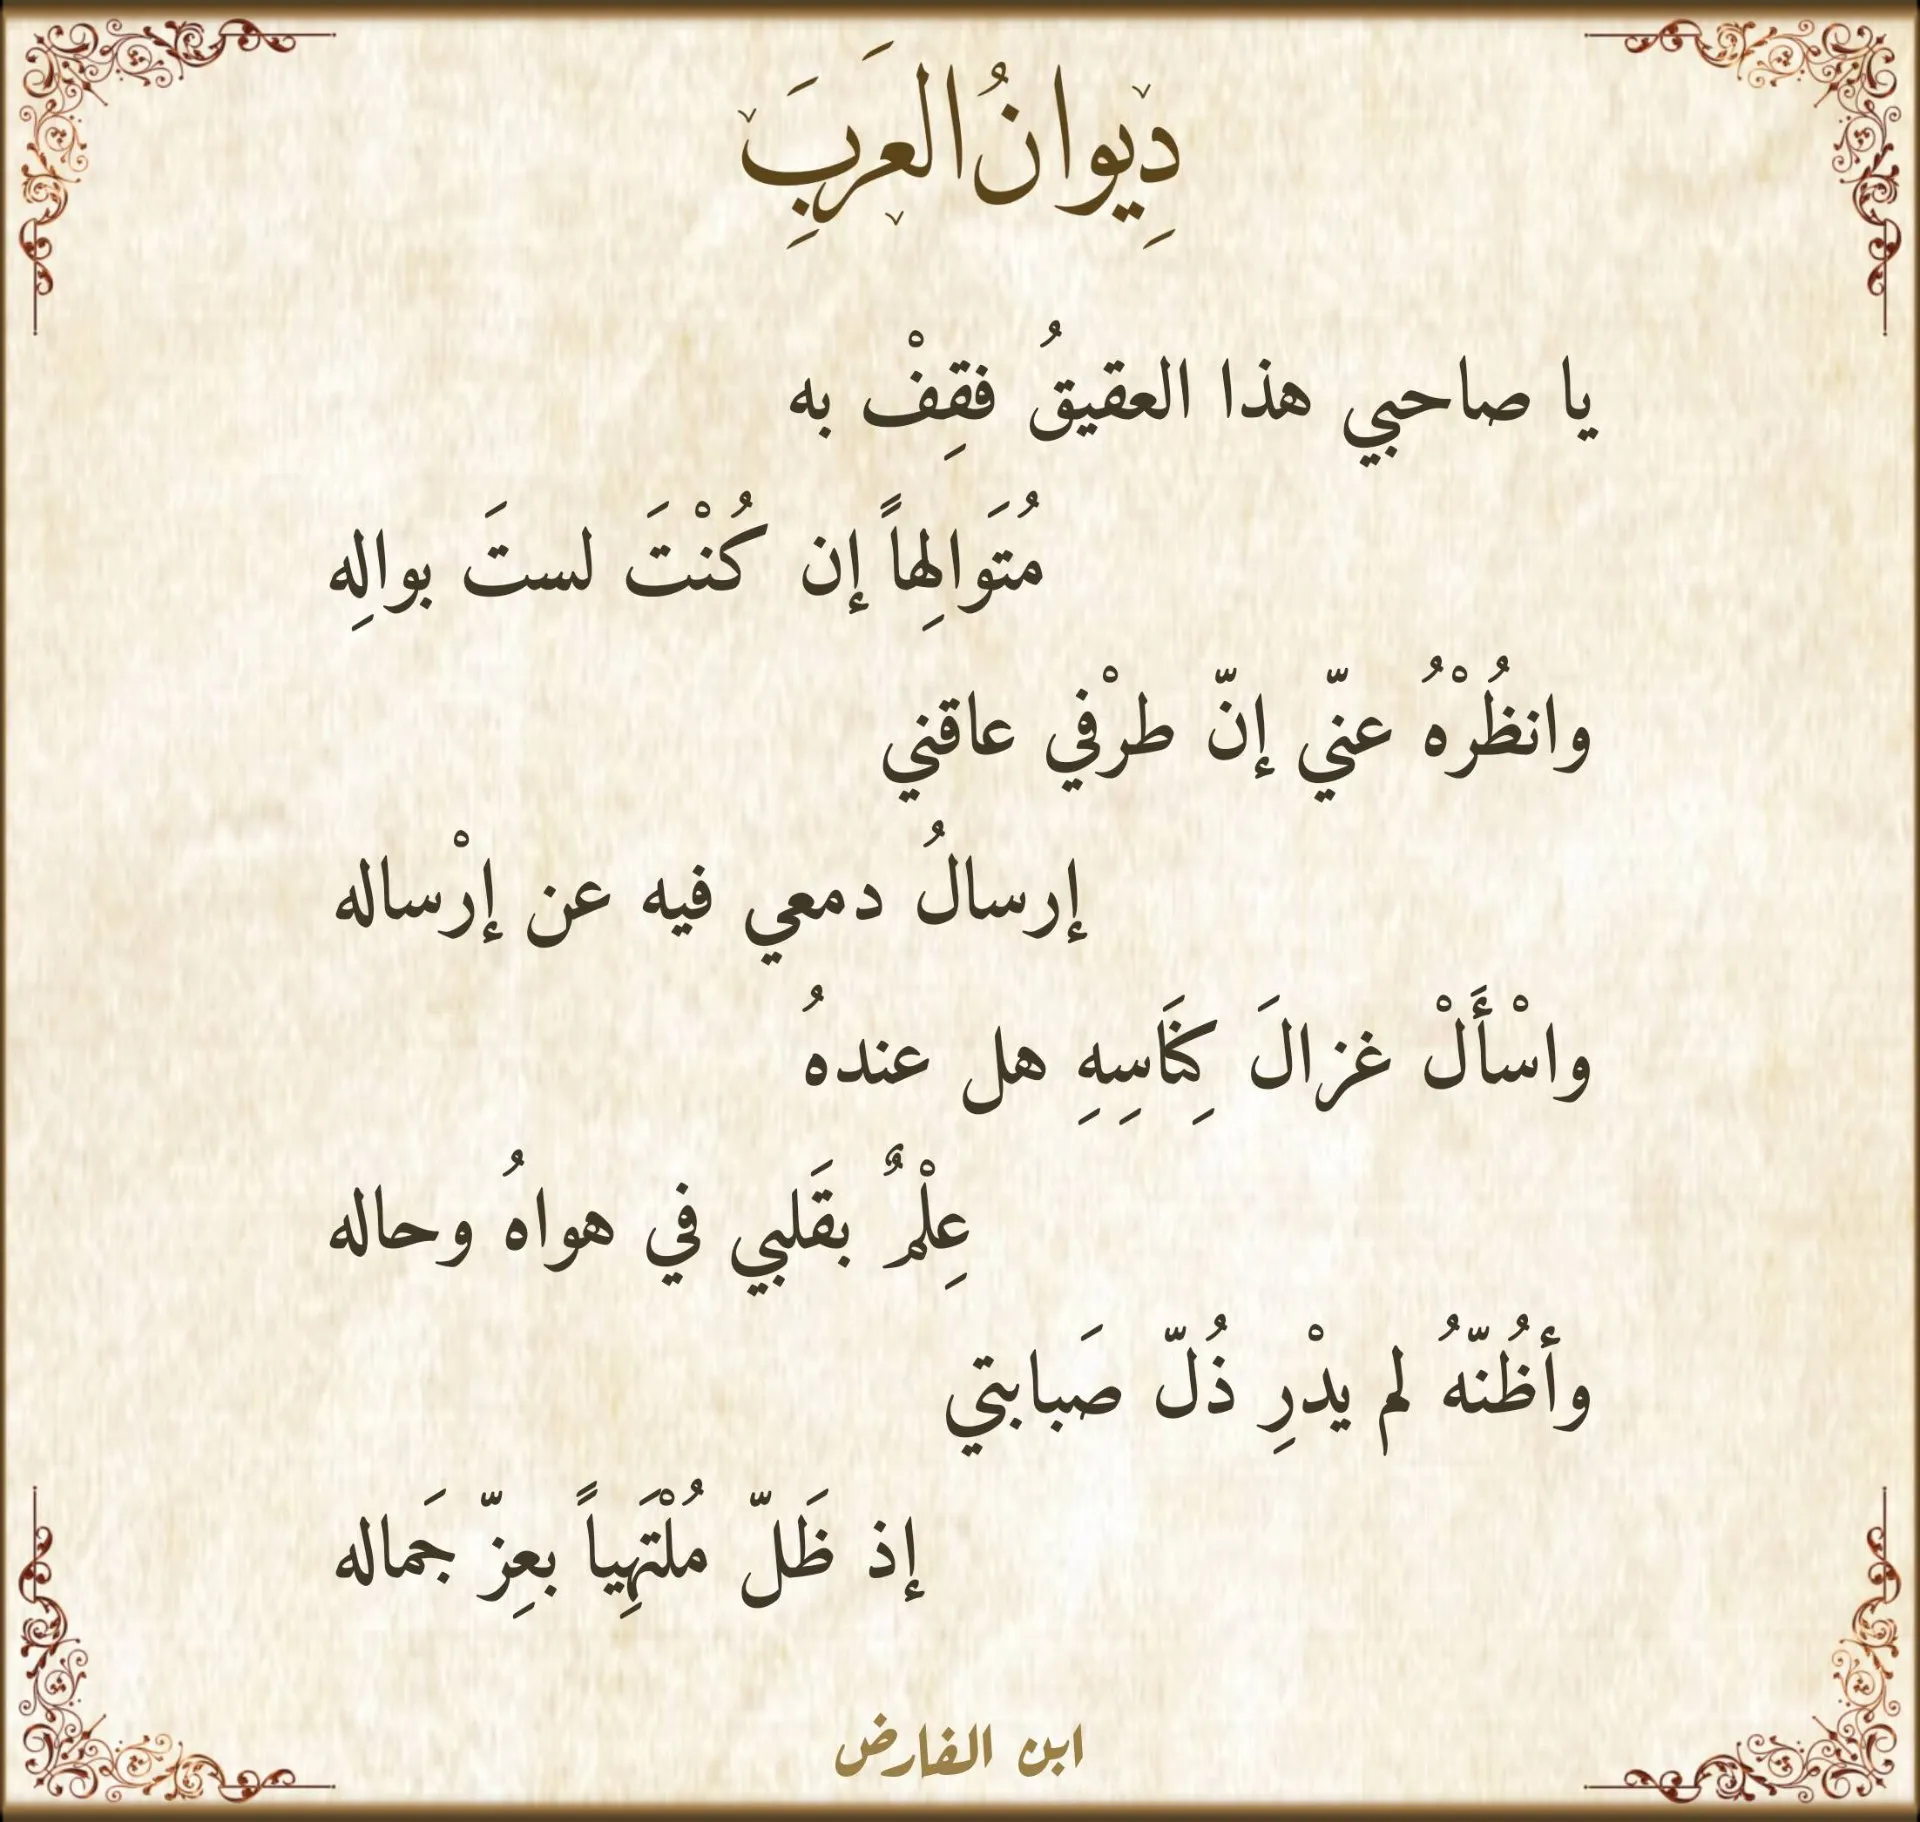 دِيوانُ العَربَِ
يا صاحبي هذا العقيقُ فقِفْ به
مُتَوالِهاً إن كُنْتَ لستَ بوالِه
وانظُرْهُ عنّي إنّ طرْفي عاقني
إرسالُ دمعي فيه عن إرْساله
واسْأَلْ غزالَ كِنَاسِهِ هل عندهُ
عِلْمٌ بقَلبي في هواهُ وحاله
وأظُنّهُ لم يدْرِ ذُلّ صَبابتي
إذ ظَلّ مُلْتَهِياً بعِزّ جَماله
ابن الفارض